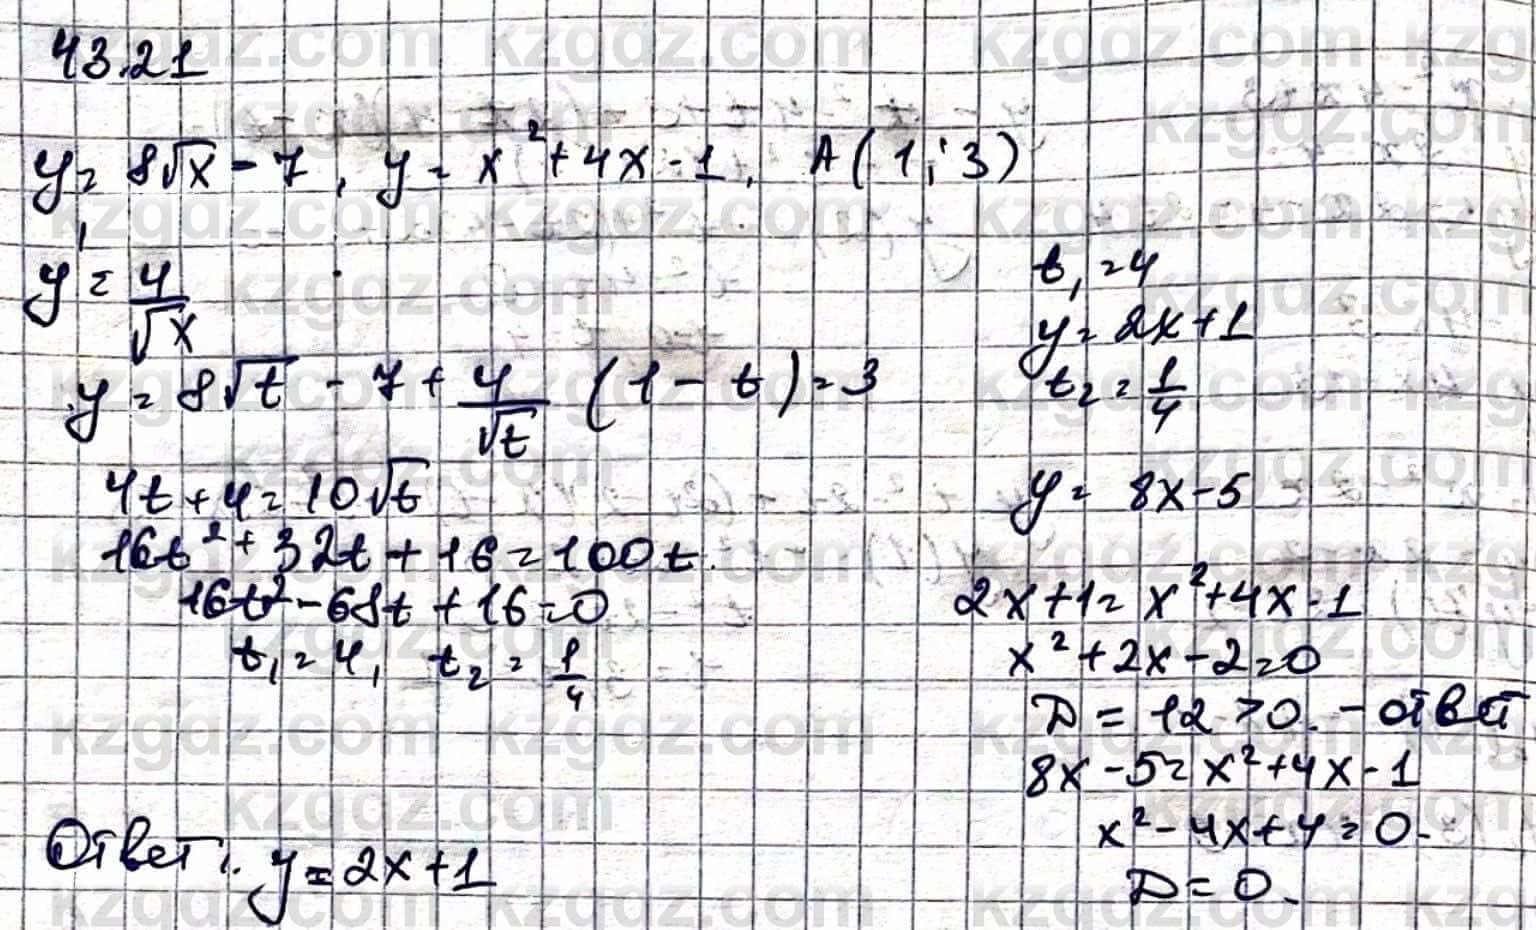 43.21
y = 8√x - 7, y = x² + 4x - 1. A(1; 3)
y' = 4/√x
y = 8√t - 7 + 4/√t (1 - t) = 3
4t + 4 = 10√t
16t² + 32t + 16 = 100t.
16t² - 68t + 16 = 0
t₁ = 4, t₂ = 1/4
t₁ = 4
y = 2x + 1
t₂ = 1/4
y = 8x - 5
2x + 1 = x² + 4x - 1
x² + 2x - 2 = 0
D = 12 > 0. - ответ
8x - 5 = x² + 4x - 1
x² - 4x + 4 = 0.
D = 0.
Ответ: y = 2x + 1
kzgdz.com